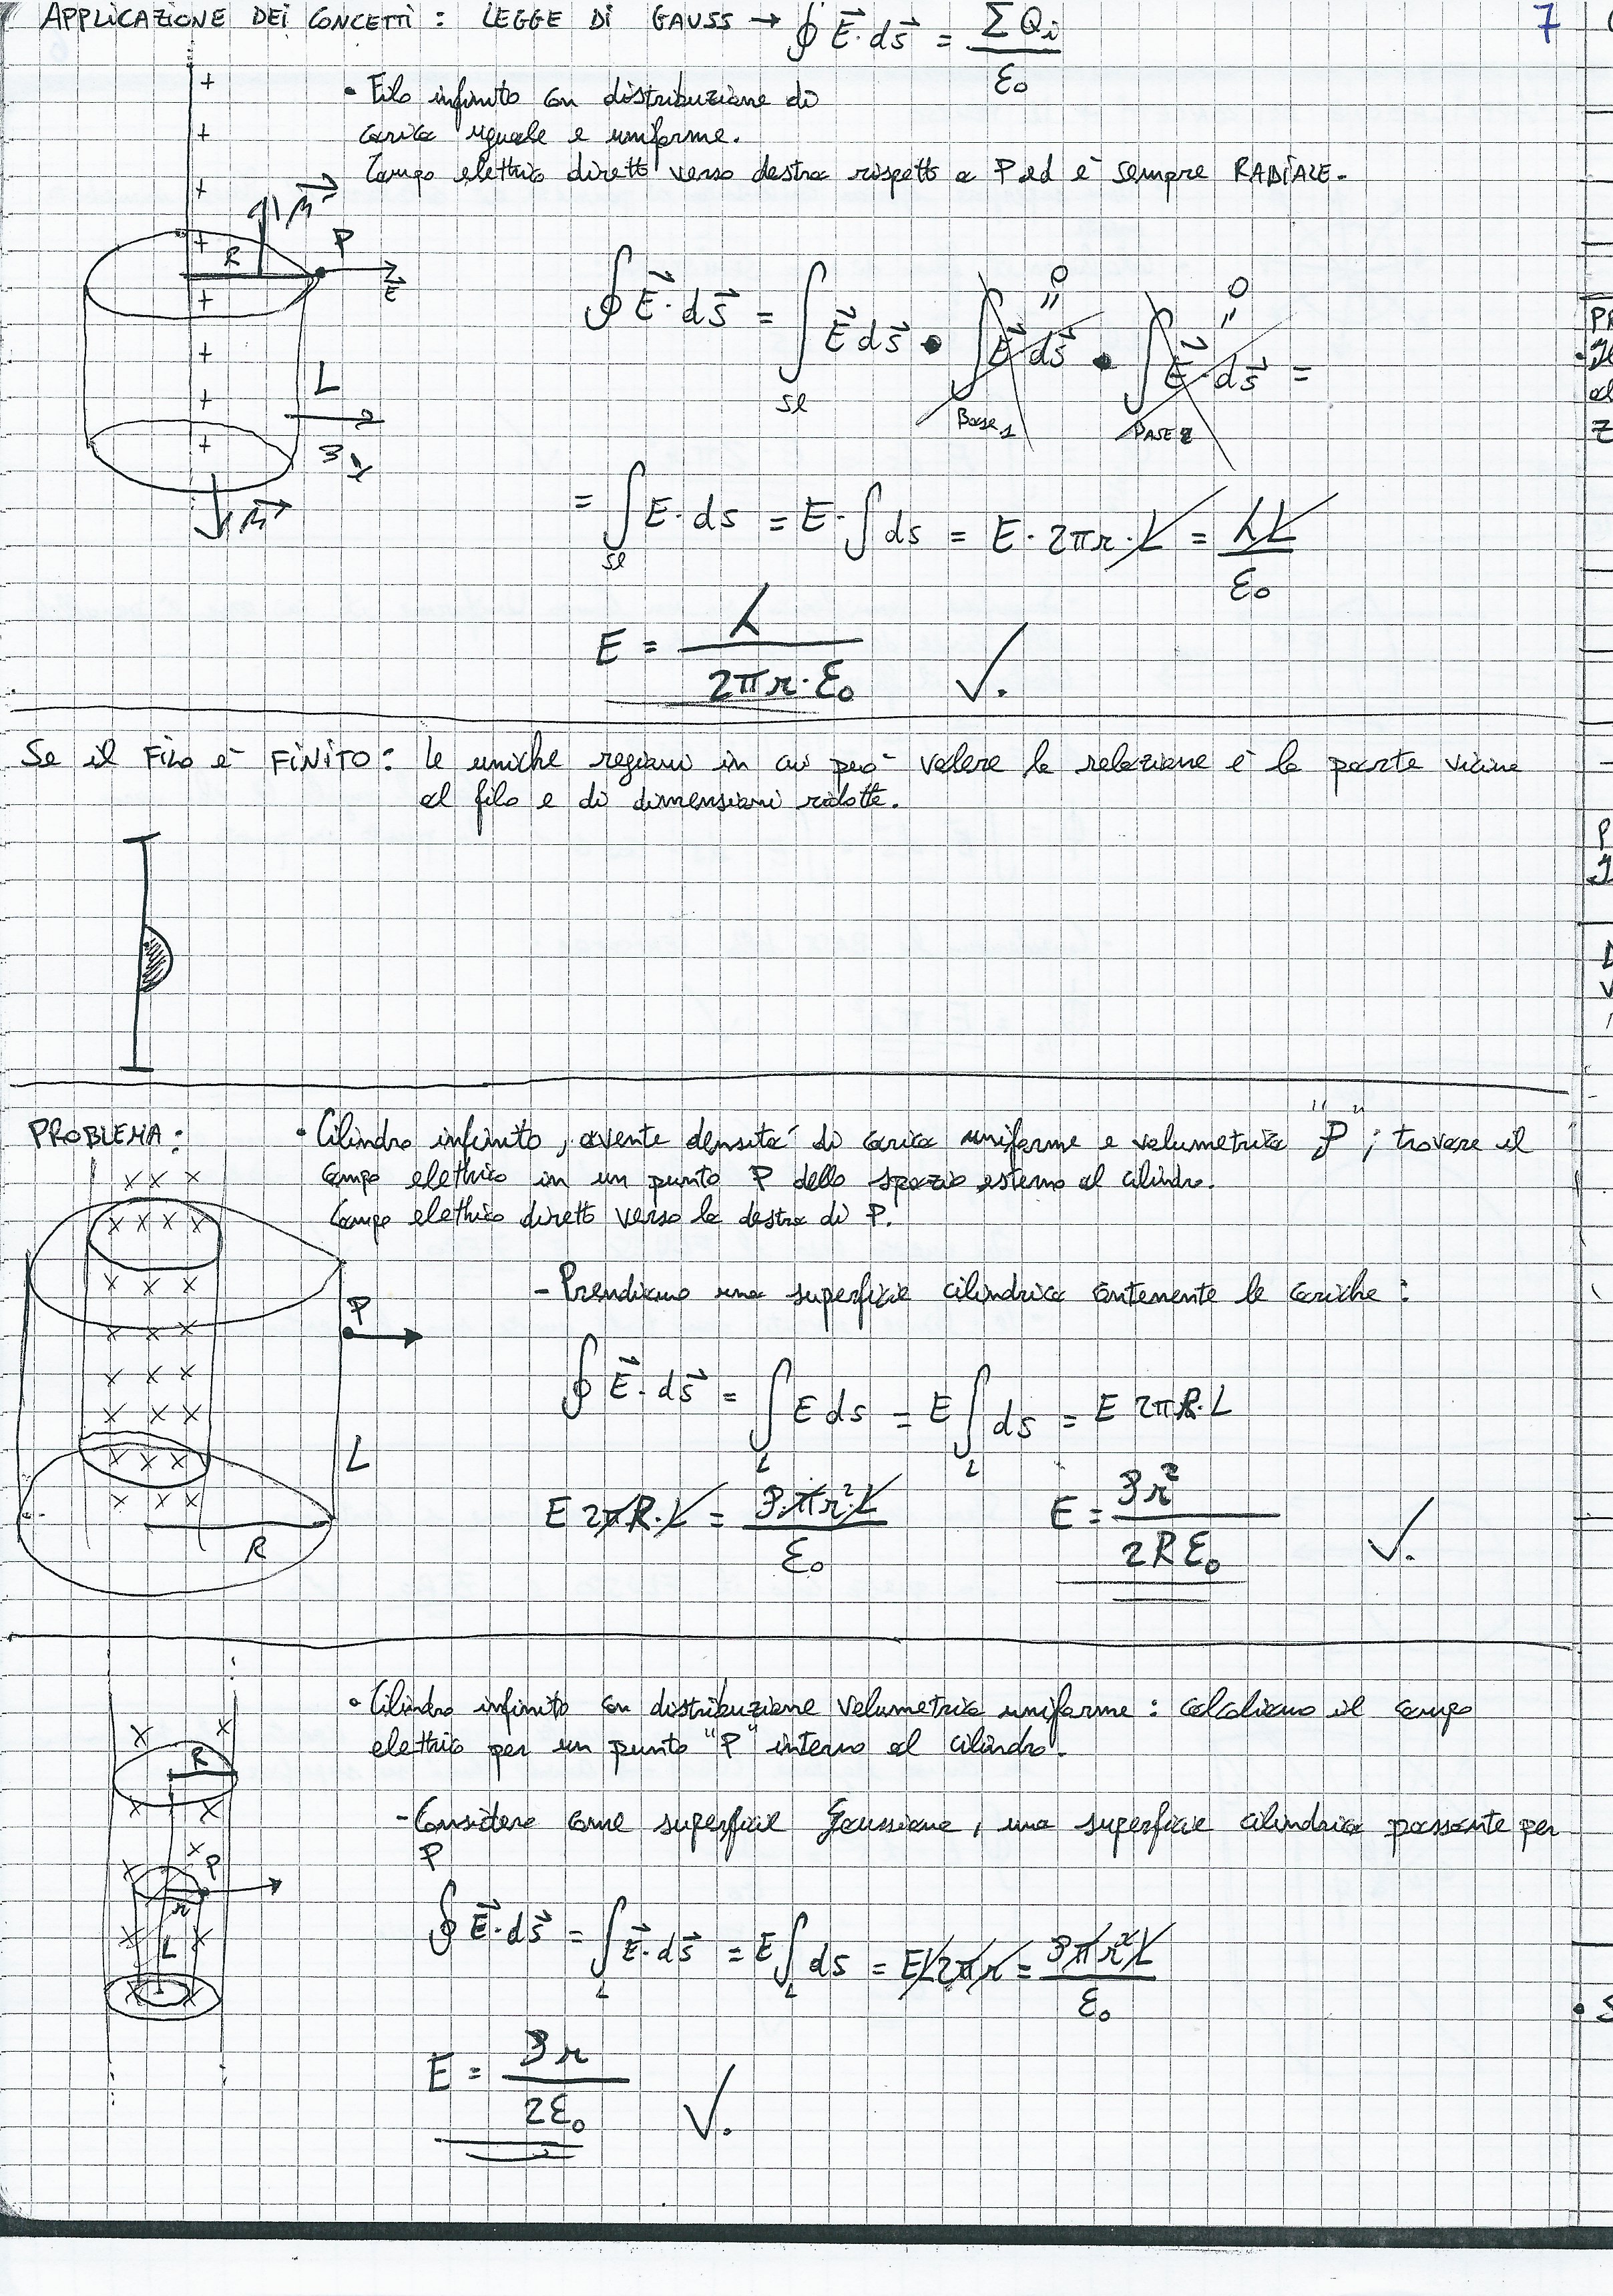 APPLICAZIONE DEI CONCETTI : LEGGE DI GAUSS → ∮ E⃗ · ds⃗ = ΣQi / ε0
7
• Filo infinito con distribuzione di
carica uguale e uniforme.
Campo elettrico diretto verso destra rispetto a P ed è sempre RADIALE.
+ + + + + + + +
n⃗
R
P
E⃗
L
n⃗
∮ E⃗ · ds⃗ = ∫Sl E⃗ ds⃗ • ∫Base 1 E⃗ · ds⃗ = 0 • ∫BASE 2 E⃗ · ds⃗ = 0 =
= ∫Sl E · ds = E · ∫ ds = E · 2πr · L = λL / ε0
E = λ / 2πr · ε0 ✓.
Se il FILO è FINITO : le uniche regioni in cui può valere la relazione è la parte vicina
al filo e di dimensioni ridotte.
PROBLEMA :
• Cilindro infinito, avente densità di carica uniforme e volumetrica "ρ" ; trovare il
campo elettrico in un punto P dello spazio esterno al cilindro.
Campo elettrico diretto verso la destra di P.
- Prendiamo una superficie cilindrica contenente le cariche :
P
L
R
∮ E⃗ · ds⃗ = ∫L E ds = E ∫L ds = E 2πR · L
E 2πR · L = ρ · πr² · L / ε0
E = ρr² / 2Rε0 ✓.
• Cilindro infinito con distribuzione volumetrica uniforme : calcoliamo il campo
elettrico per un punto "P" interno al cilindro.
R
- Considero come superficie Gaussiana, una superficie cilindrica passante per
P
P
r
L
∮ E⃗ · ds⃗ = ∫L E⃗ · ds⃗ = E ∫L ds = EL2πr = ρπr²L / ε0
E = ρr / 2ε0 ✓.